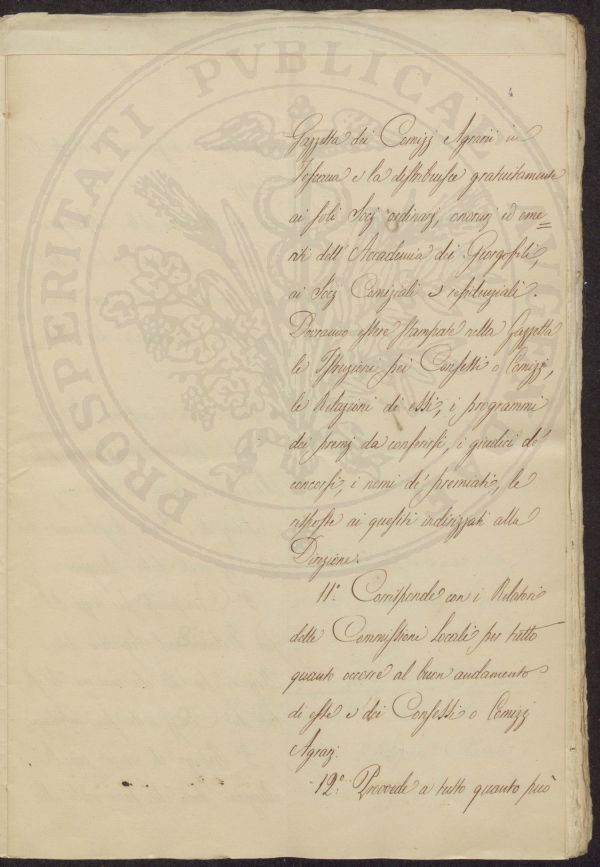 4
Gazzetta dei Comizj Agrarii in
Toscana e la distribuisce gratuitamente
ai soli Socj ordinarj, onorarj ed eme=
riti dell'Accademia dei Georgofili,
ai Socj Comiziali e residenziali.
Dovranno essere stampate nella Gazzetta
le Istruzioni pei Consessi o Comizzj,
le Relazioni di essi, i programmi
dei premj da conferirsi, i giudici de'
concorsi, i nomi de' premiati, le
risposte ai quesiti indirizzati alla
Direzione.
11° Corrisponde con i Relatori
delle Commissioni locali per tutto
quanto occorre al buon andamento
di esse e dei Consessi o Comizzj
Agrarj.
12° Provvede a tutto quanto può
PROSPERITATI PUBLICAE